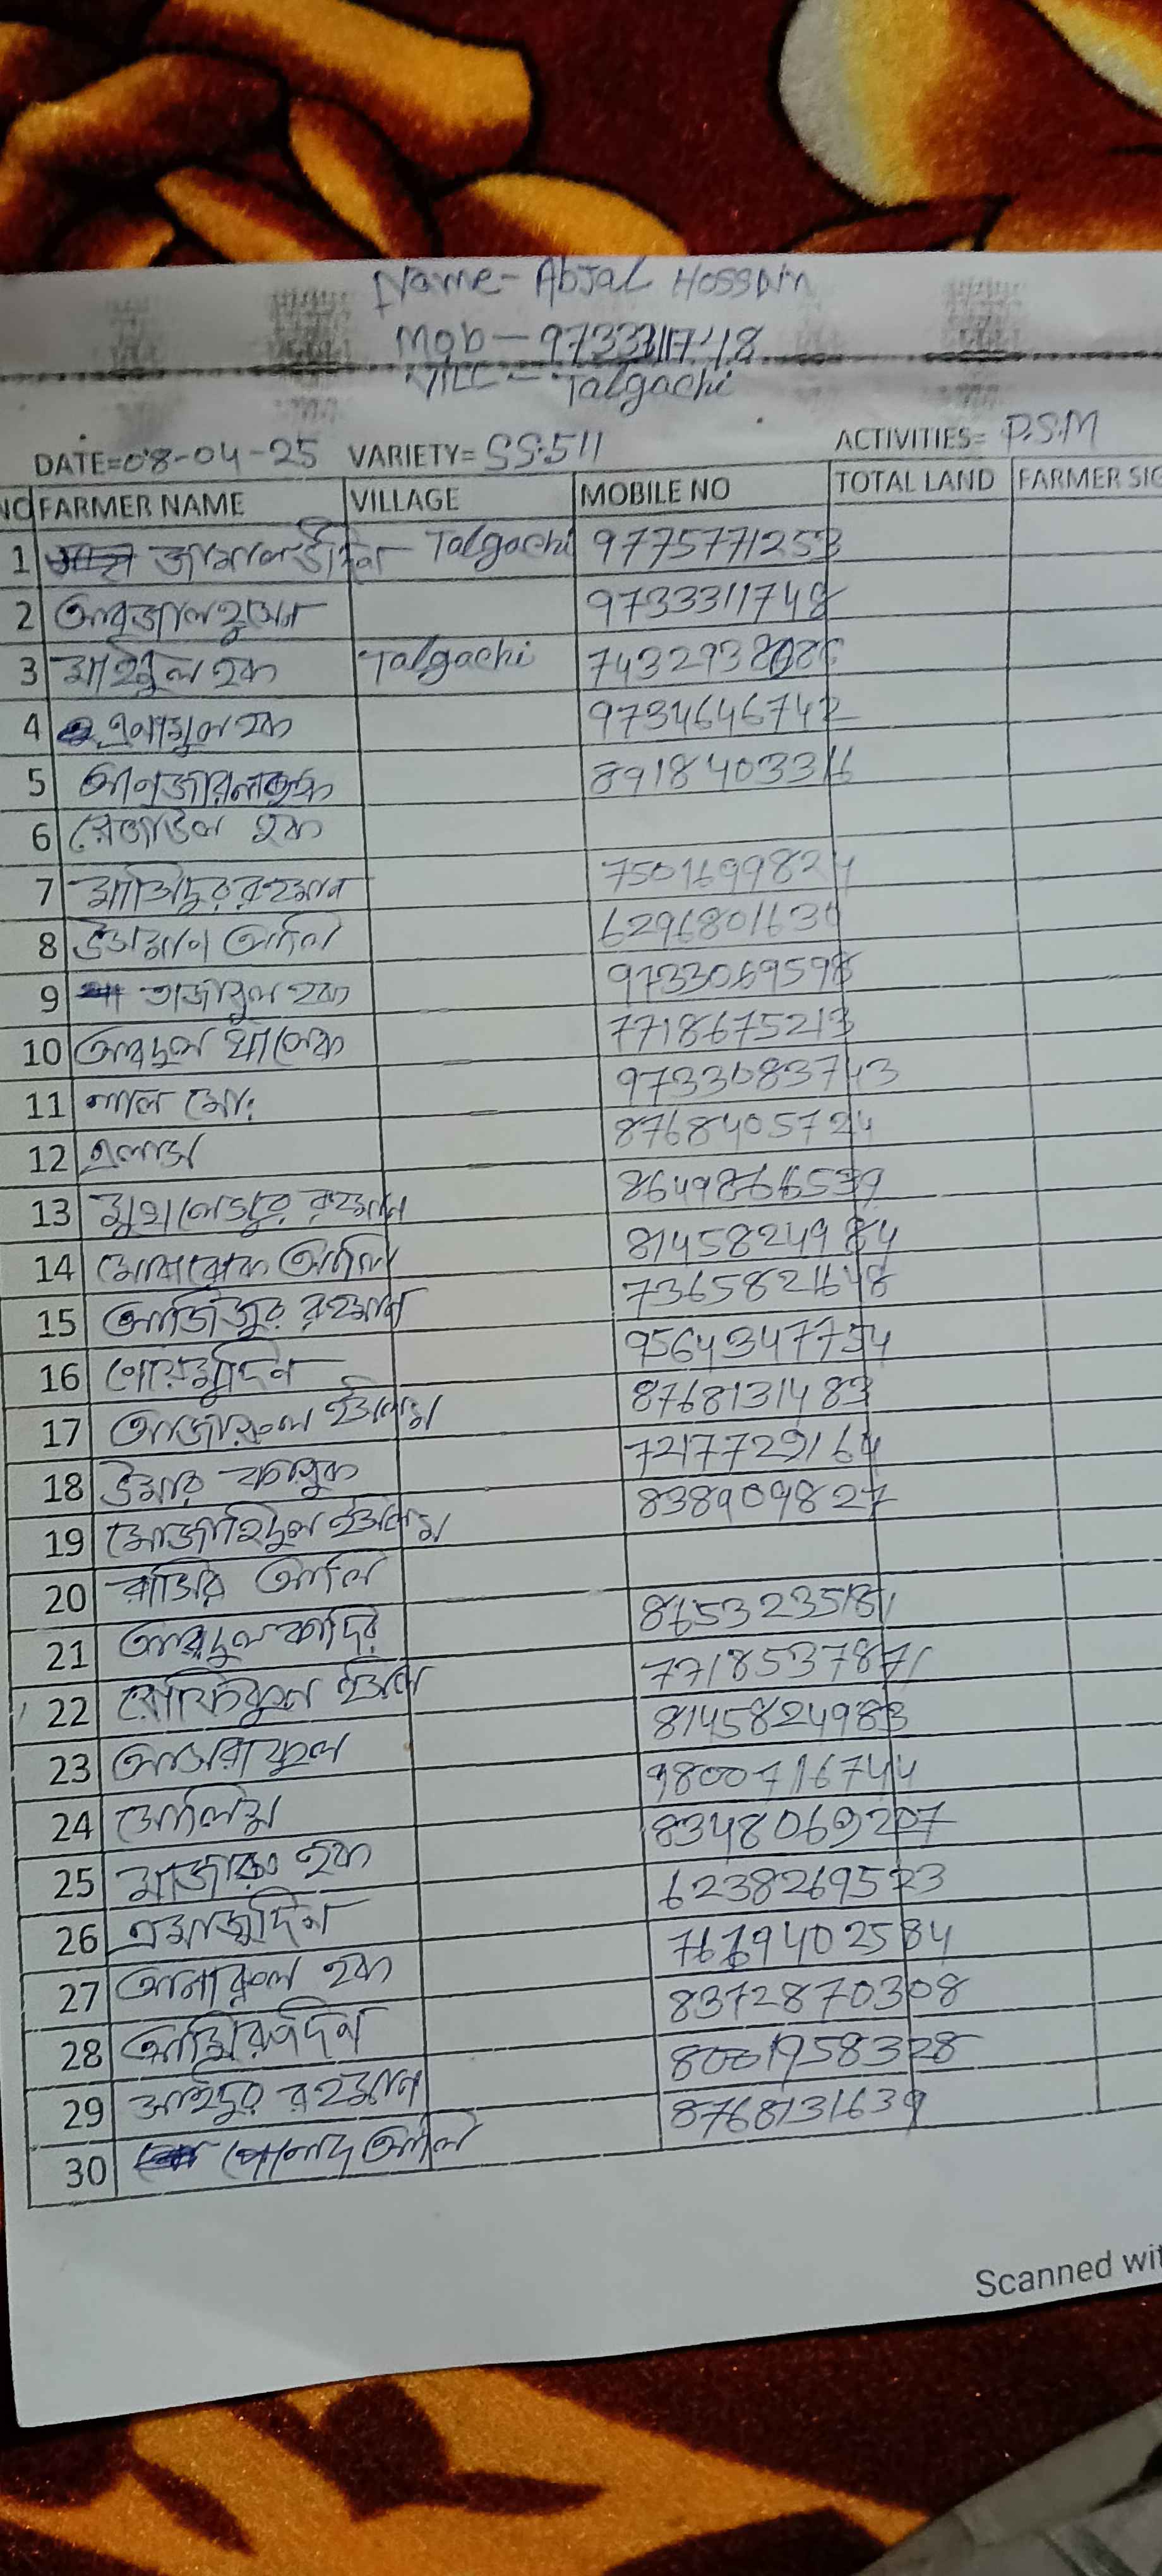 Name- Abjal Hossain
Mob- 9733311748
Vill- Talgachi
DATE=08-04-25 VARIETY= SS.511 ACTIVITIES= P.S.M
NO FARMER NAME VILLAGE MOBILE NO TOTAL LAND FARMER SIG
1 জামালউদ্দিন Talgachi 9775771253
2 আবজাল হুসেন 9733311748
3 মাইনুল হক Talgachi
4 এনামুল হক 9734646742
5 8918403316
6 রেজাউল হক
7 মাজিদুর রহমান 7501699824
8 উসমান আলি
9 তাজাবুল হক 9733069598
10 আব্দুল খালেক 7718675213
11 লাল মোঃ 9733083743
12 এলাজ 8768405724
13 রহমান
14 মোবারক আলি 8145824984
15 আজিজুর রহমান 7365821648
16 9564347754
17 ইসলাম 8768131483
18 উমার ফারুক 7217729164
19 মোজাহিদুল ইসলাম 838909827
20 আলি
21 আব্দুল কাদির
22 রফিকুল ইসলাম 7718537871
23 আসরাফুল 8145824983
24 আলিম 9800716744
25 হক 8348069207
26 এমাজুদ্দিন 6238269523
27 আনারুল হক
28 8372870308
29 রহমান 8001958328
30 আলি 8768131639
Scanned wit